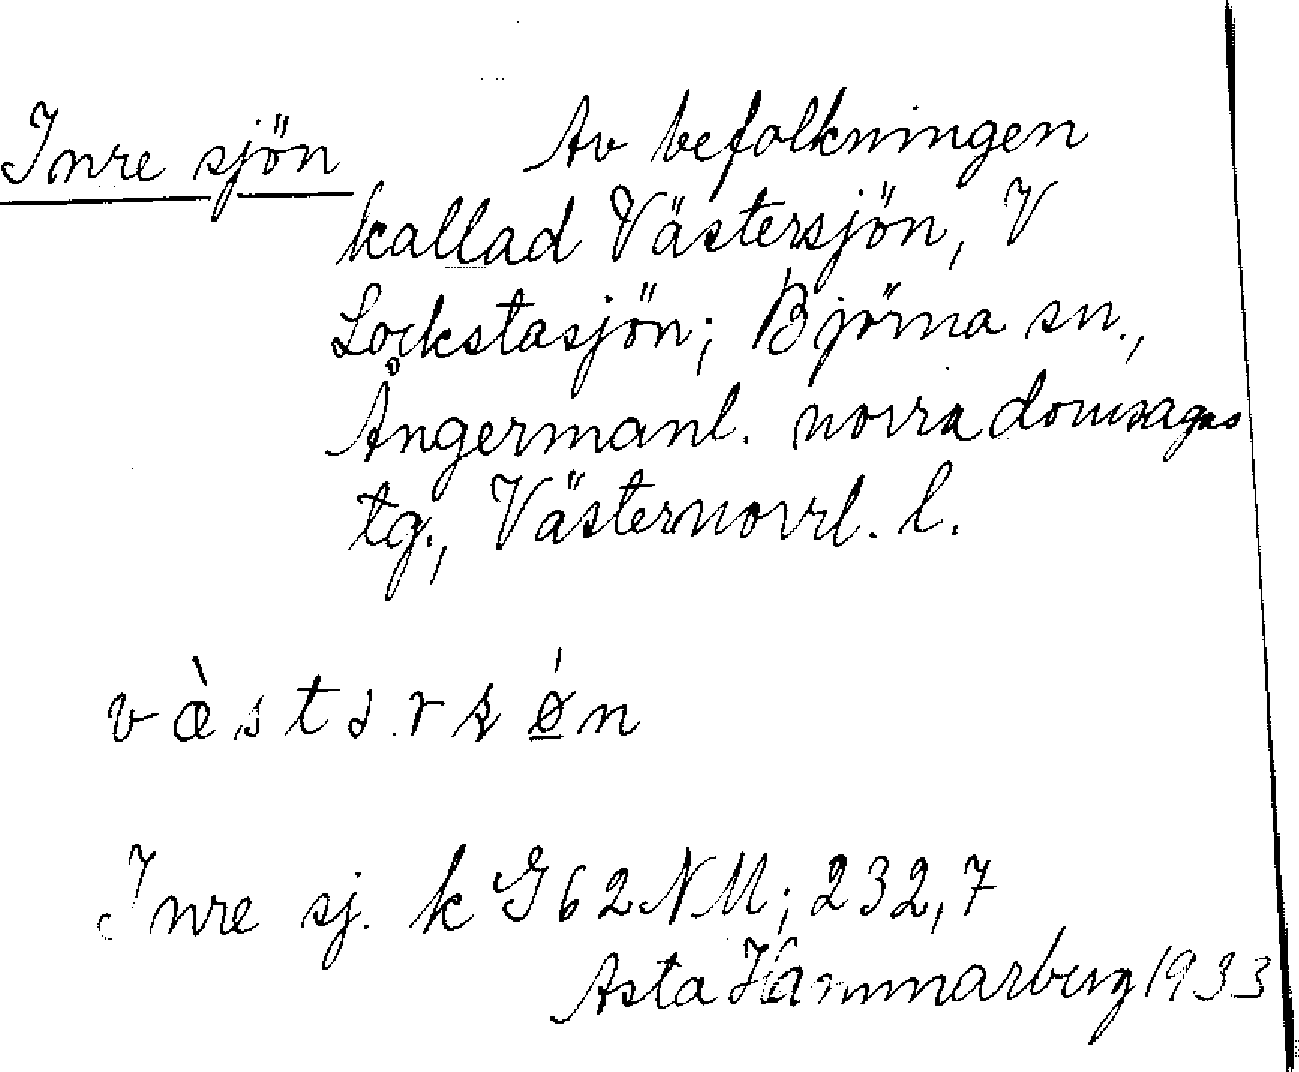 Inre sjön Av befolkningen
kallad Västersjön, V
Lockstasjön; Björna sn.,
Ångermanl. norra domsagas
tg., Västernorrl. l.
væ̀stərsǿ̲n
Inre sj. k G62NM; 232,7
Asta Hammarberg 1933